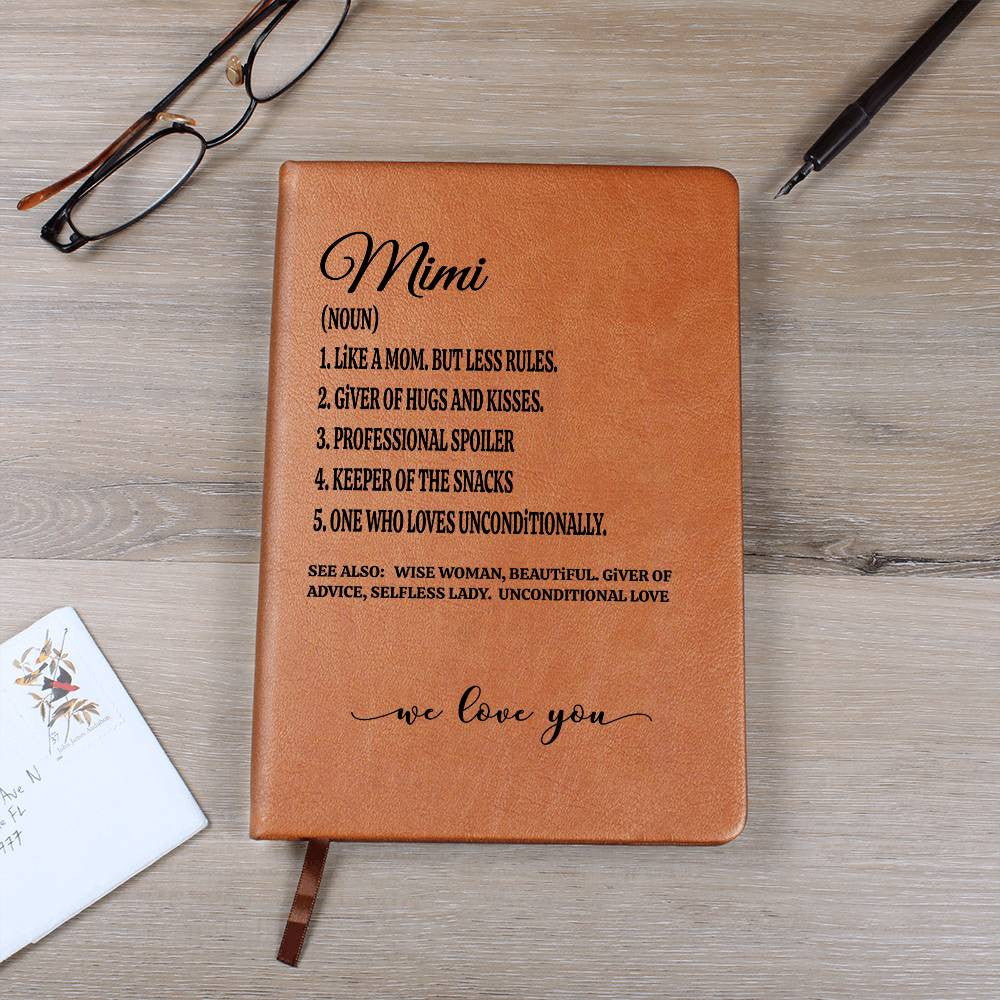 Mimi
(NOUN)
1. LiKE A MOM. BUT LESS RULES.
2. GiVER OF HUGS AND KISSES.
3. PROFESSIONAL SPOILER
4. KEEPER OF THE SNACKS
5. ONE WHO LOVES UNCONDiTIONALLY.
SEE ALSO: WISE WOMAN, BEAUTiFUL. GiVER OF
ADVICE, SELFLESS LADY. UNCONDITIONAL LOVE
we love you
John James Audubon
Ave N
FL